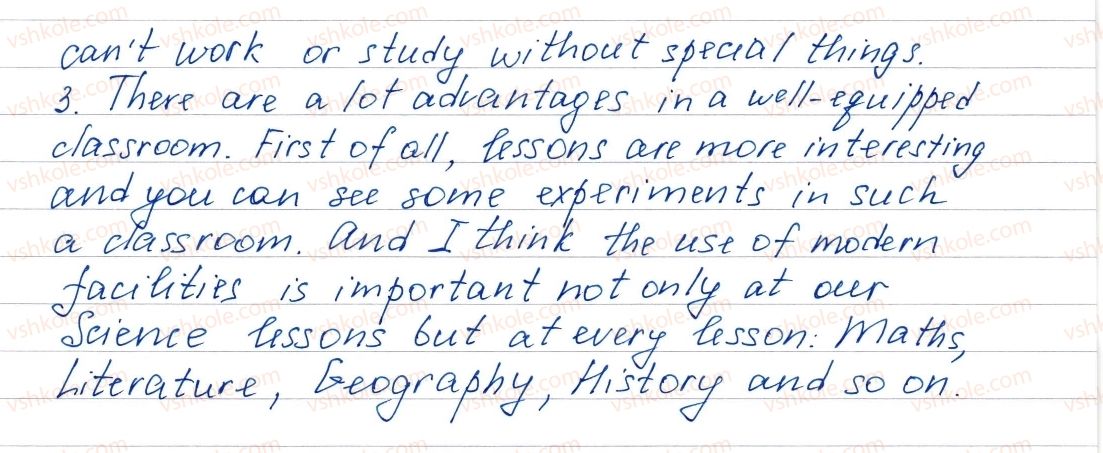 can't work or study without special things.
3. There are a lot advantages in a well-equipped
classroom. First of all, lessons are more interesting
and you can see some experiments in such
a classroom. And I think the use of modern
facilities is important not only at our
Science lessons but at every lesson: Maths,
Literature, Geography, History and so on.